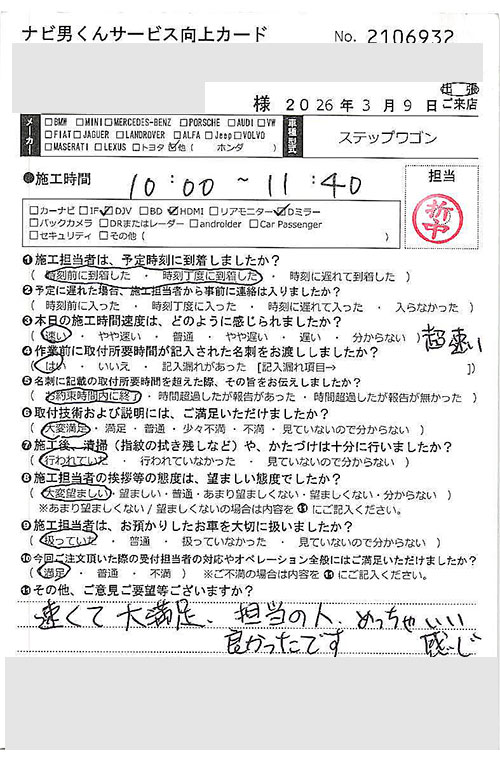 ナビ男くんサービス向上カード No. 2106932
様 2026年3月9日 出張 ご来店
メーカー □BMW □MINI □MERCEDES-BENZ □PORSCHE □AUDI □VW
□FIAT □JAGUER □LANDROVER □ALFA □Jeep □VOLVO
□MASERATI □LEXUS □トヨタ ☑他 ( ホンダ )
車種型式 ステップワゴン
●施工時間 10:00 ~ 11:40
担当
折中
□カーナビ □IF ☑DJV □BD ☑HDMI □リアモニター ☑Dミラー
□バックカメラ □DRまたはレーダー □androider □Car Passenger
□セキュリティ □その他 ( )
❶施工担当者は、予定時刻に到着しましたか?
( 時刻前に到着した ・ 時刻丁度に到着した ・ 時刻に遅れて到着した )
❷予定に遅れた場合、施工担当者から事前に連絡は入りましたか?
( 時刻前に入った ・ 時刻丁度に入った ・ 時刻に遅れて入った ・ 入らなかった )
❸本日の施工時間速度は、どのように感じられましたか?
( 速い ・ やや速い ・ 普通 ・ やや遅い ・ 遅い ・ 分からない ) 超速い
❹作業前に取付所要時間が記入された名刺をお渡ししましたか?
( はい ・ いいえ ・ 記入漏れがあった [記入漏れ項目→ ])
❺名刺に記載の取付所要時間を超えた際、その旨をお伝えしましたか?
( お約束時間内に終了 ・ 時間超過したが報告があった ・ 時間超過したが報告が無かった )
❻取付技術および説明には、ご満足いただけましたか?
( 大変満足 ・ 満足 ・ 普通 ・ 少々不満 ・ 不満 ・ 見ていないので分からない )
❼施工後、清掃(指紋の拭き残しなど)や、かたづけは十分に行いましたか?
( 行われていた ・ 行われていなかった ・ 見ていないので分からない )
❽施工担当者の挨拶等の態度は、望ましい態度でしたか?
( 大変望ましい ・ 望ましい ・ 普通 ・ あまり望ましくない ・ 望ましくない ・ 分からない )
※あまり望ましくない / 望ましくないの場合は内容を⓫にご記入ください。
❾施工担当者は、お預かりしたお車を大切に扱いましたか?
( 扱っていた ・ 普通 ・ 扱っていなかった ・ 見ていないので分からない )
❿今回ご注文頂いた際の受付担当者の対応やオペレーション全般にはご満足いただけましたか?
( 満足 ・ 普通 ・ 不満 ) ※ご不満の場合は内容を⓫にご記入ください。
⓫その他、ご意見ご要望等ございますか?
速くて大満足、担当の人、めっちゃいい感じ
良かったです